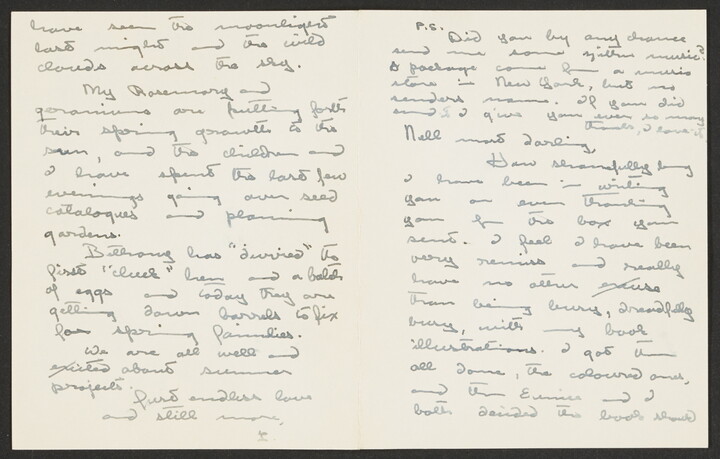 have seen the moonlight
last night and the wild
clouds across the sky.
My Rosemary and
geraniums are putting forth
their spring growth to the
sun, and the children and
I have spent the last few
evenings going over seed
catalogues and planning
gardens.
Bethany has "durried" the
first "cluck" hen and a batch
of eggs and today they are
getting down barrels to fix
for spring families.
We are all well and
excited about summer
projects.
Just endless love
and still more,
P.S.
Did you by any chance
send me some zither music?
A package came from a music
store in New York, but no
senders name. If you did
send it I give you ever so many
thanks, I love it
Nell most darling,
How shamefully long
I have been in writing
you or even thanking
you for the box you
sent. I feel I have been
very remiss and really
have no other excuse
than being busy, dreadfully
busy, with my book
illustrations. I got them
all done, the coloured ones,
and then Eunice and I
both decided the book should